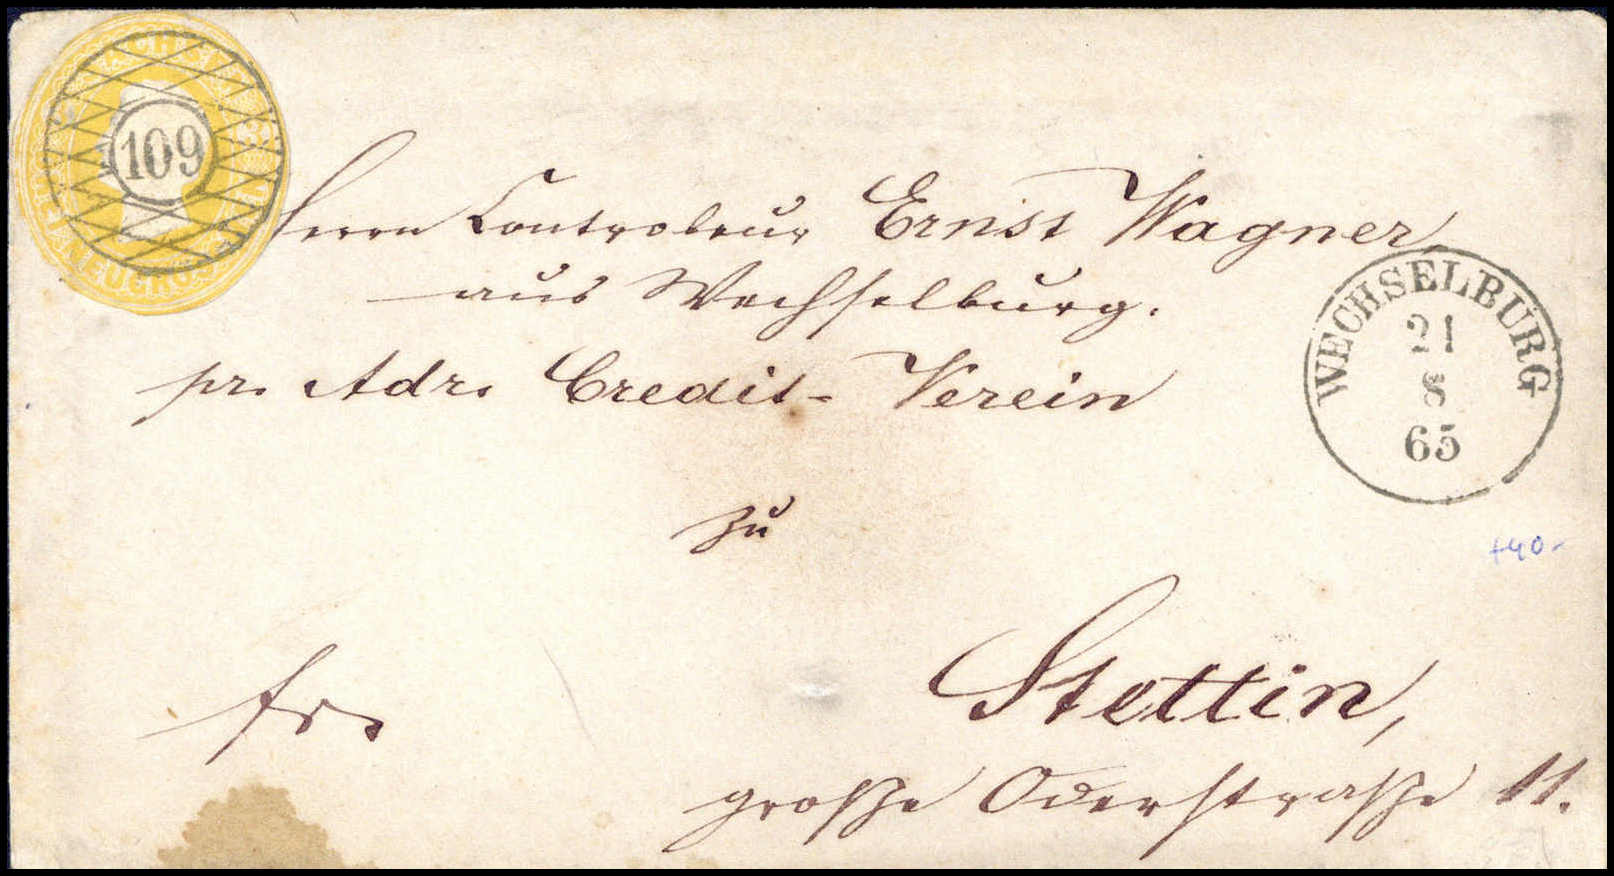 109
Herrn Controleur Ernst Wagner
aus Wechselburg.
pr. Adr. Credit-Verein
WECHSELBURG
21
8
65
zu
+40-
Stettin,
fr.
große Oderstraße 11.